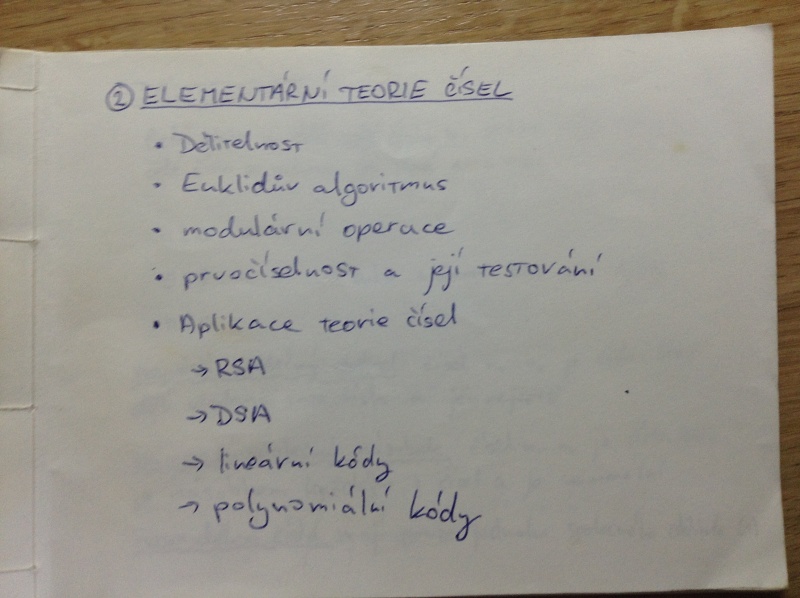 ② ELEMENTÁRNÍ TEORIE ČÍSEL
• Dělitelnost
• Euklidův algoritmus
• modulární operace
• prvočíselnost a její testování
• Aplikace teorie čísel
→ RSA
→ DSA
→ lineární kódy
→ polynomiální kódy